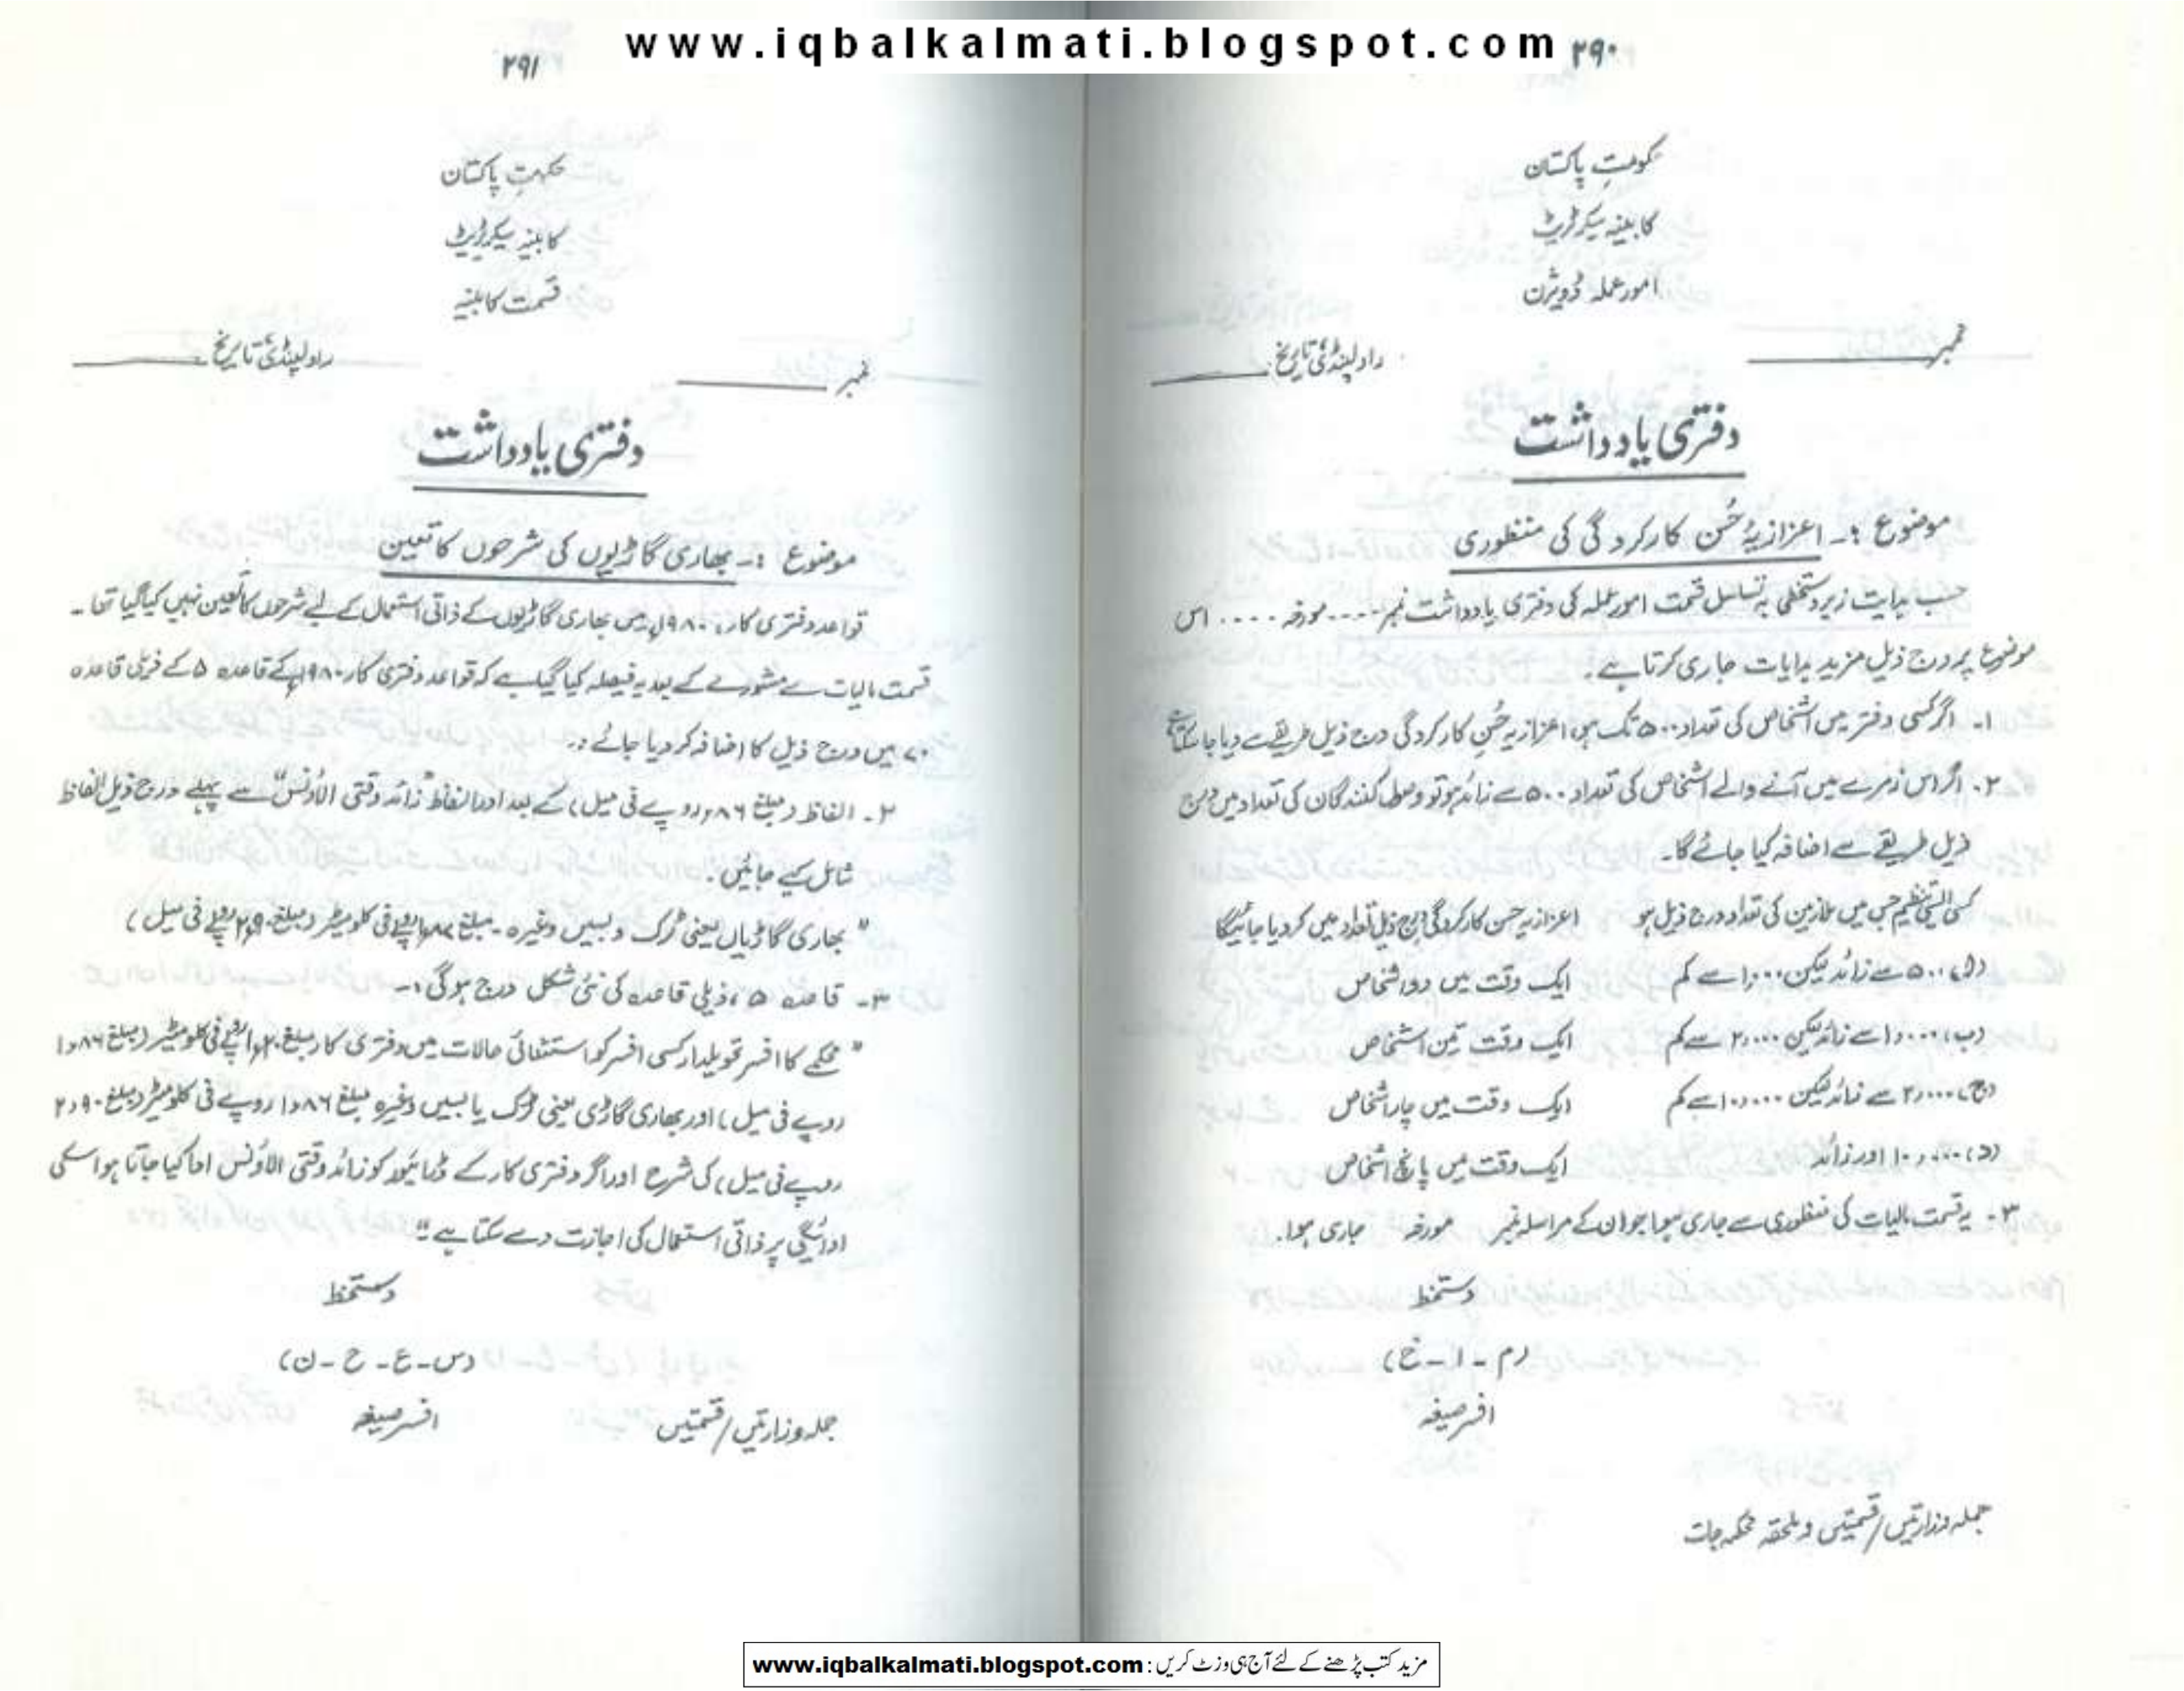 www.iqbalkalmati.blogspot.com
۲۹۰
حکومتِ پاکستان
کابینہ سیکرٹریٹ
امور عملہ ڈویژن
نمبر ________ راولپنڈی تاریخ ________
دفتری یادداشت
موضوع :۔ اعزازیۂ حُسن کارکردگی کی منظوری
حسب ہدایت زیر دستخطی بہ تسلسل قسمت امور عملہ کی دفتری یادداشت نمبر ۔۔۔۔ مورخہ ۔۔۔۔ اس
موضوع پر درج ذیل مزید ہدایات جاری کرتا ہے۔
۱۔ اگر کسی دفتر میں اشخاص کی تعداد ۵۰۰ تک ہو، اعزازیہ حُسنِ کارکردگی درج ذیل طریقے سے دیا جا سکتا ہے
۲۔ اگر اس زمرے میں آنے والے اشخاص کی تعداد ۵۰۰ سے زائد ہو تو وصول کنندگان کی تعداد میں درج
ذیل طریقے سے اضافہ کیا جائے گا۔
کسی ایسی تنظیم جس میں ملازمین کی تعداد درج ذیل ہو اعزازیہ حسن کارکردگی درج ذیل تعداد میں کر دیا جائیگا
(ا) ۵۰۰ سے زائد لیکن ۱,۰۰۰ سے کم ایک وقت میں دو اشخاص
(ب) ۱,۰۰۰ سے زائد لیکن ۲,۰۰۰ سے کم ایک وقت تین اشخاص
(ج) ۲,۰۰۰ سے زائد لیکن ۱۰,۰۰۰ سے کم ایک وقت میں چار اشخاص
(د) ۱۰,۰۰۰ اور زائد ایک وقت میں پانچ اشخاص
۳۔ یہ قسمت مالیات کی منظوری سے جاری ہوا جو ان کے مراسلہ نمبر مورخہ جاری ہوا۔
دستخط
(م - ا - خ)
افسر صیغہ
جملہ وزارتیں/قسمتیں و ملحقہ محکمہ جات
۲۹۱
حکومتِ پاکستان
کابینہ سیکرٹریٹ
قسمت کابینہ
نمبر ________ راولپنڈی تاریخ ________
دفتری یادداشت
موضوع :۔ بھاری گاڑیوں کی شرحوں کا تعین
قواعد دفتری کار، ۱۹۸۰ء میں بھاری گاڑیوں کے ذاتی استعمال کے لیے شرحوں کا تعین نہیں کیا گیا تھا ۔
قسمت مالیات سے مشورے کے بعد یہ فیصلہ کیا گیا ہے کہ قواعد دفتری کار ۱۹۸۰ء کے قاعدہ ۵ کے ذیلی قاعدہ
۷۰ میں درج ذیل کا اضافہ کر دیا جائے :۔
۲۔ الفاظ (مبلغ ۱٫۸۶ روپے فی میل) کے بعد اور الفاظ "زائد وقتی الاؤنس" سے پہلے درج ذیل الفاظ
شامل کیے جائیں۔
" بھاری گاڑیاں یعنی ٹرک و بسیں وغیرہ ۔ مبلغ روپے فی کلومیٹر (مبلغ ۲٫۹۰ روپے فی میل)
۳۔ قاعدہ ۵، ذیلی قاعدہ کی نئی شکل درج ہوگی :۔
" محکمے کا افسر تحویلدار کسی افسر کو استثنائی حالات میں دفتری کار مبلغ روپے فی کلومیٹر (مبلغ ۱٫۸۶
روپے فی میل) اور بھاری گاڑی یعنی ٹرک یا بسیں وغیرہ مبلغ ۱٫۸۶ روپے فی کلومیٹر (مبلغ ۲٫۹۰
روپے فی میل) کی شرح اور اگر دفتری کار کے ڈرائیور کو زائد وقتی الاؤنس ادا کیا جاتا ہو اسکی
ادائیگی پر ذاتی استعمال کی اجازت دے سکتا ہے"۔
دستخط
(س - ع - ح - ن)
افسر صیغہ
جملہ وزارتیں/قسمتیں
مزید کتب پڑھنے کے لئے آج ہی وزٹ کریں : www.iqbalkalmati.blogspot.com